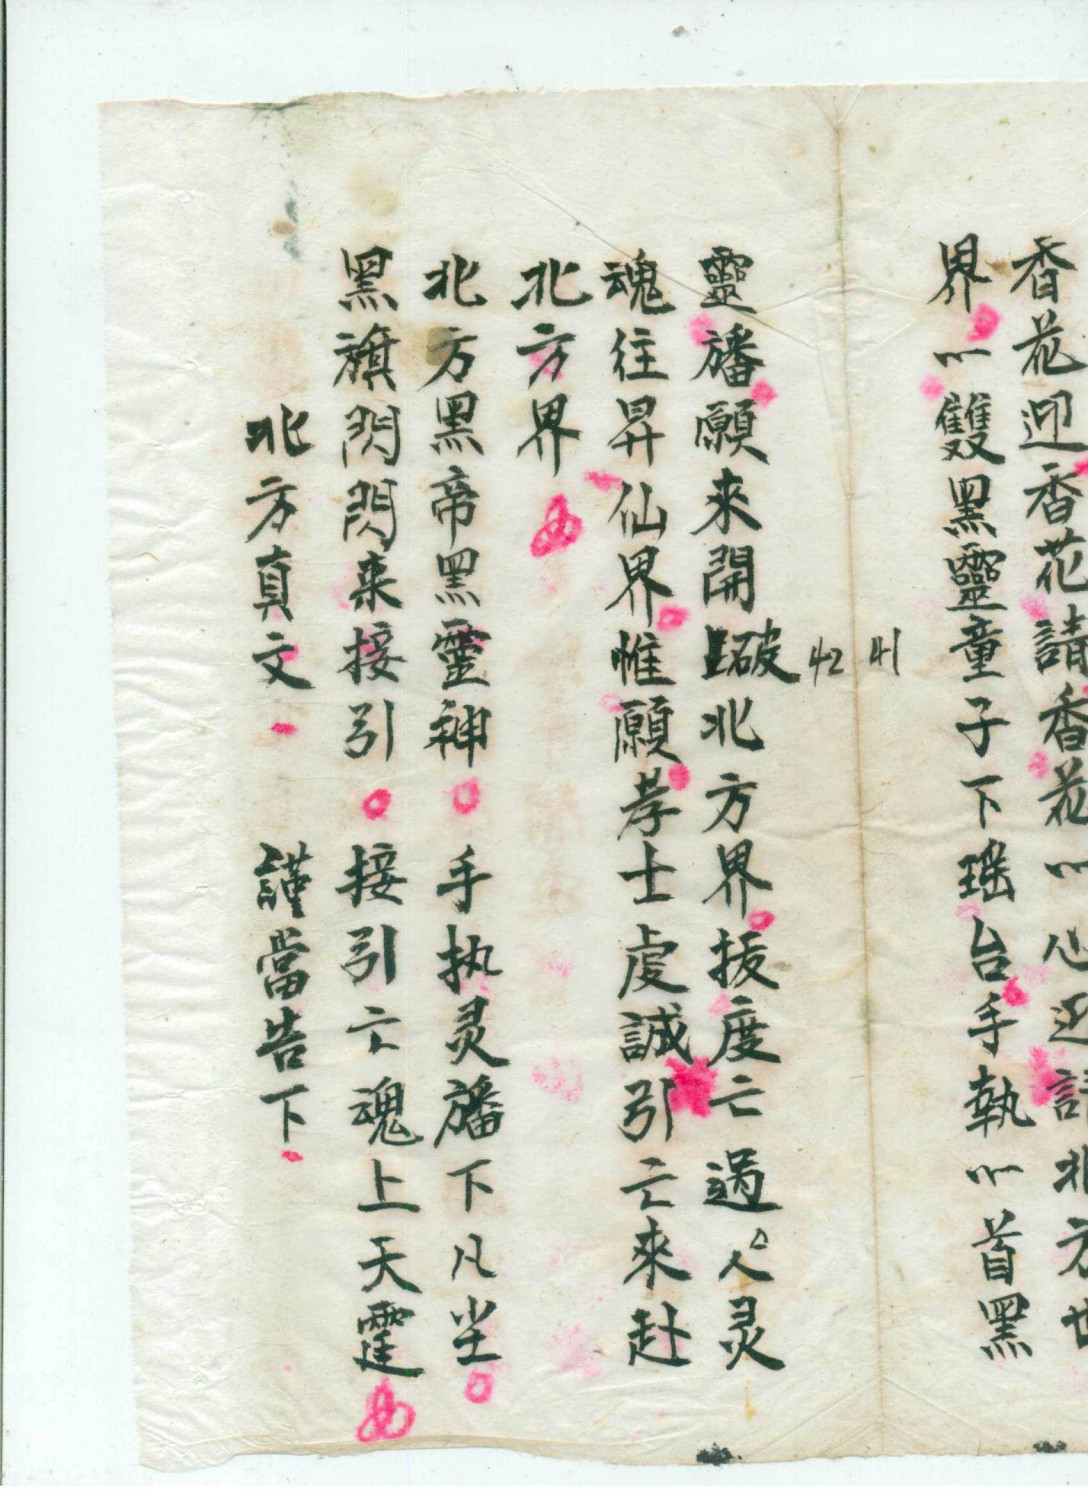 香花迎香花請香花〃心迎請北方世
界〃雙黑靈童子下瑶台手執〃首黑
41
42
靈旛願來開破北方界拔度亡過人灵
魂往昇仙界惟願孝士虔誠引亡來赴
北方界
北方黑帝黑靈神手执灵旛下凡尘
黑旗閃閃来接引接引亡魂上天霆
北方真文 謹當告下